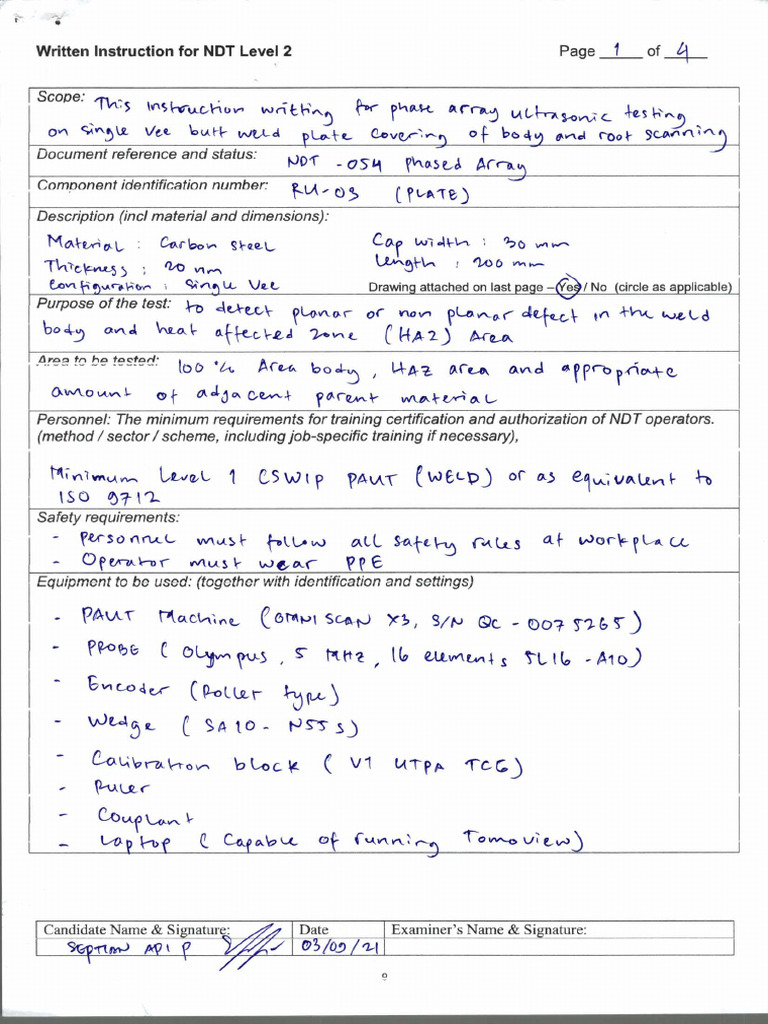 Written Instruction for NDT Level 2 Page 1 of 4
Scope: This instruction writting for phase array ultrasonic testing
on single vee butt weld plate covering of body and root scanning
Document reference and status: NDT -054 Phased Array
Component identification number: RU-03 (PLATE)
Description (incl material and dimensions):
Material : Carbon steel Cap width : 30 mm
Thickness : 20 mm Length : 200 mm
Configuration : Single Vee Drawing attached on last page – Yes / No (circle as applicable)
Purpose of the test: to detect planar or non planar defect in the weld
body and heat affected zone (HAZ) Area
Area to be tested: 100 % Area body , HAZ area and appropriate
amount of adjacent parent material
Personnel: The minimum requirements for training certification and authorization of NDT operators.
(method / sector / scheme, including job-specific training if necessary),
Minimum Level 1 CSWIP PAUT (WELD) or as equivalent to
ISO 9712
Safety requirements:
- Personnel must follow all safety rules at workplace
- Operator must wear PPE
Equipment to be used: (together with identification and settings)
- PAUT Machine (OMNISCAN X3, S/N QC - 0075265)
- PROBE ( Olympus , 5 MHz , 16 elements 5L16 -A10)
- Encoder (Roller type)
- Wedge ( SA10 - N55 S)
- Calibration block ( V1 UTPA TCG)
- Ruler
- Couplant
- Laptop ( Capable of running Tomoview)
Candidate Name & Signature: Date Examiner's Name & Signature:
SEPTIAN API P 03/09/21